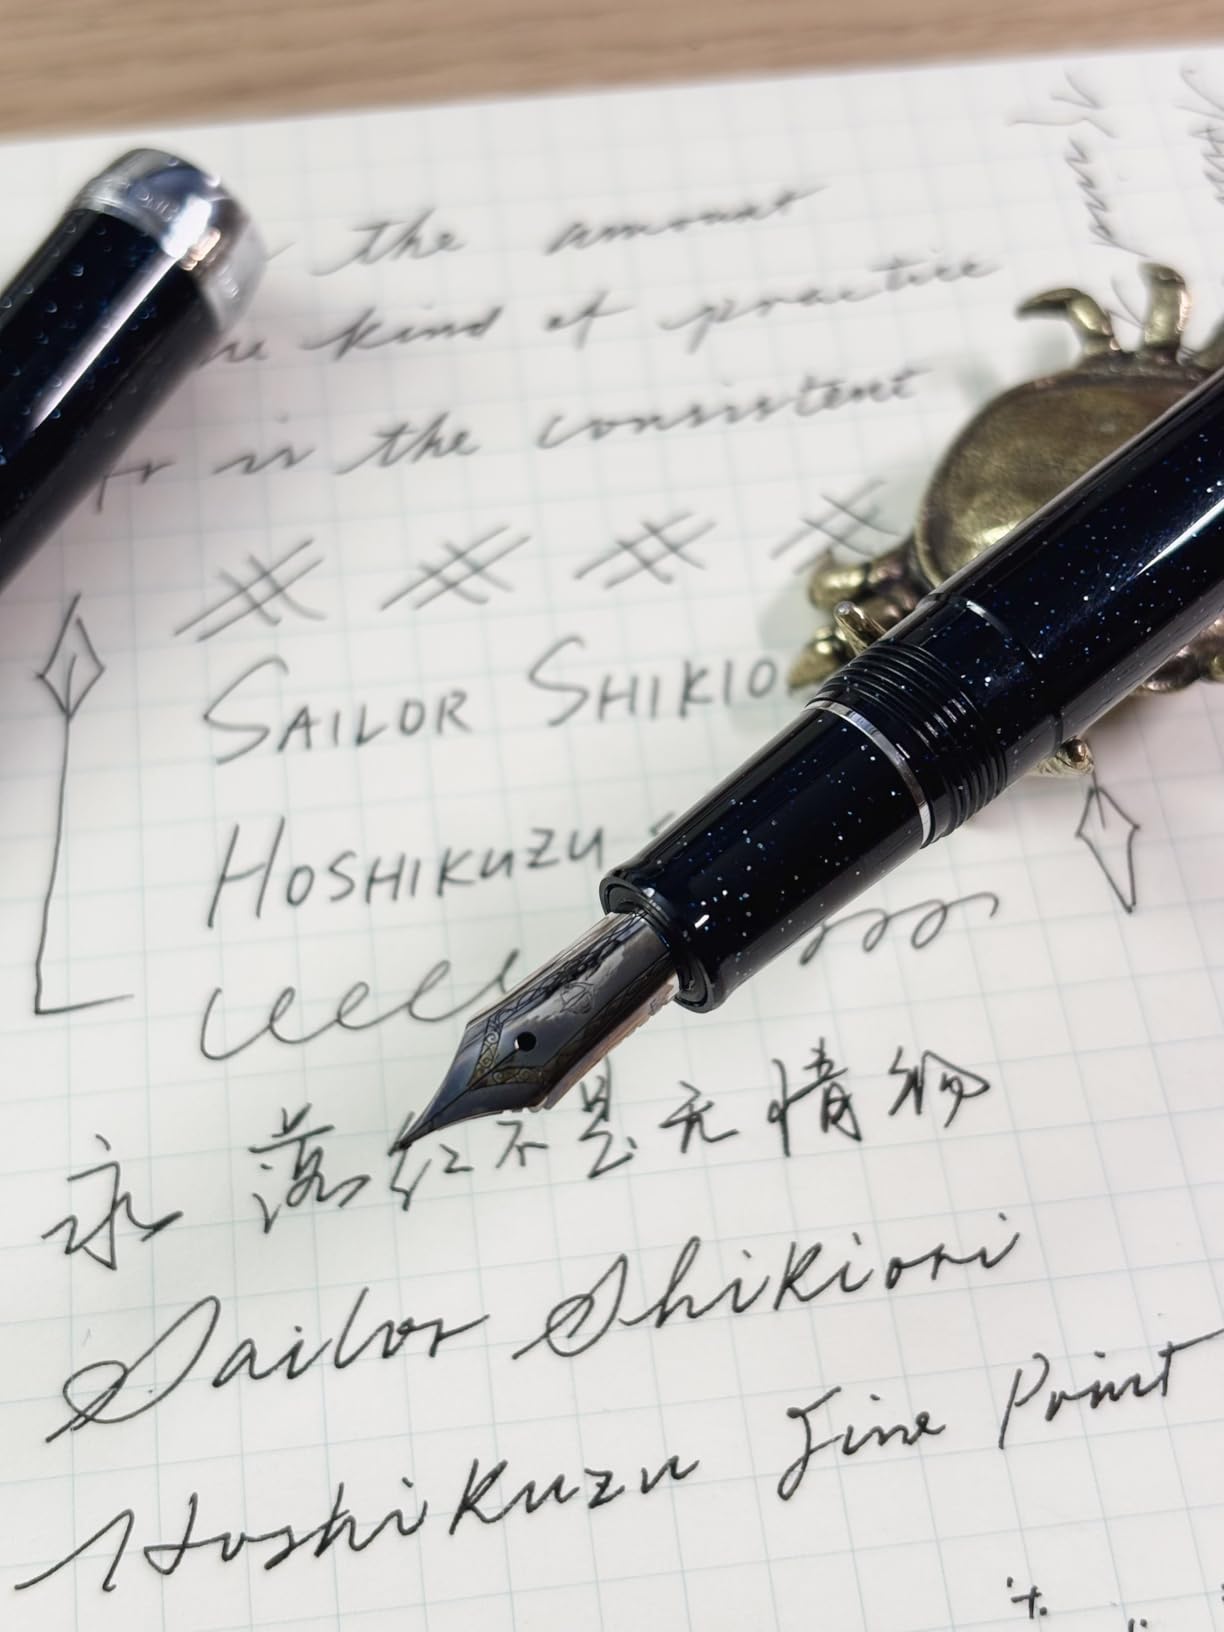 the amount
kind of practice
is the consistent
SAILOR SHIKIO
HOSHIKUZU
永 落红不是无情物
Sailor Shikiori
Hoshikuzu Fine Point